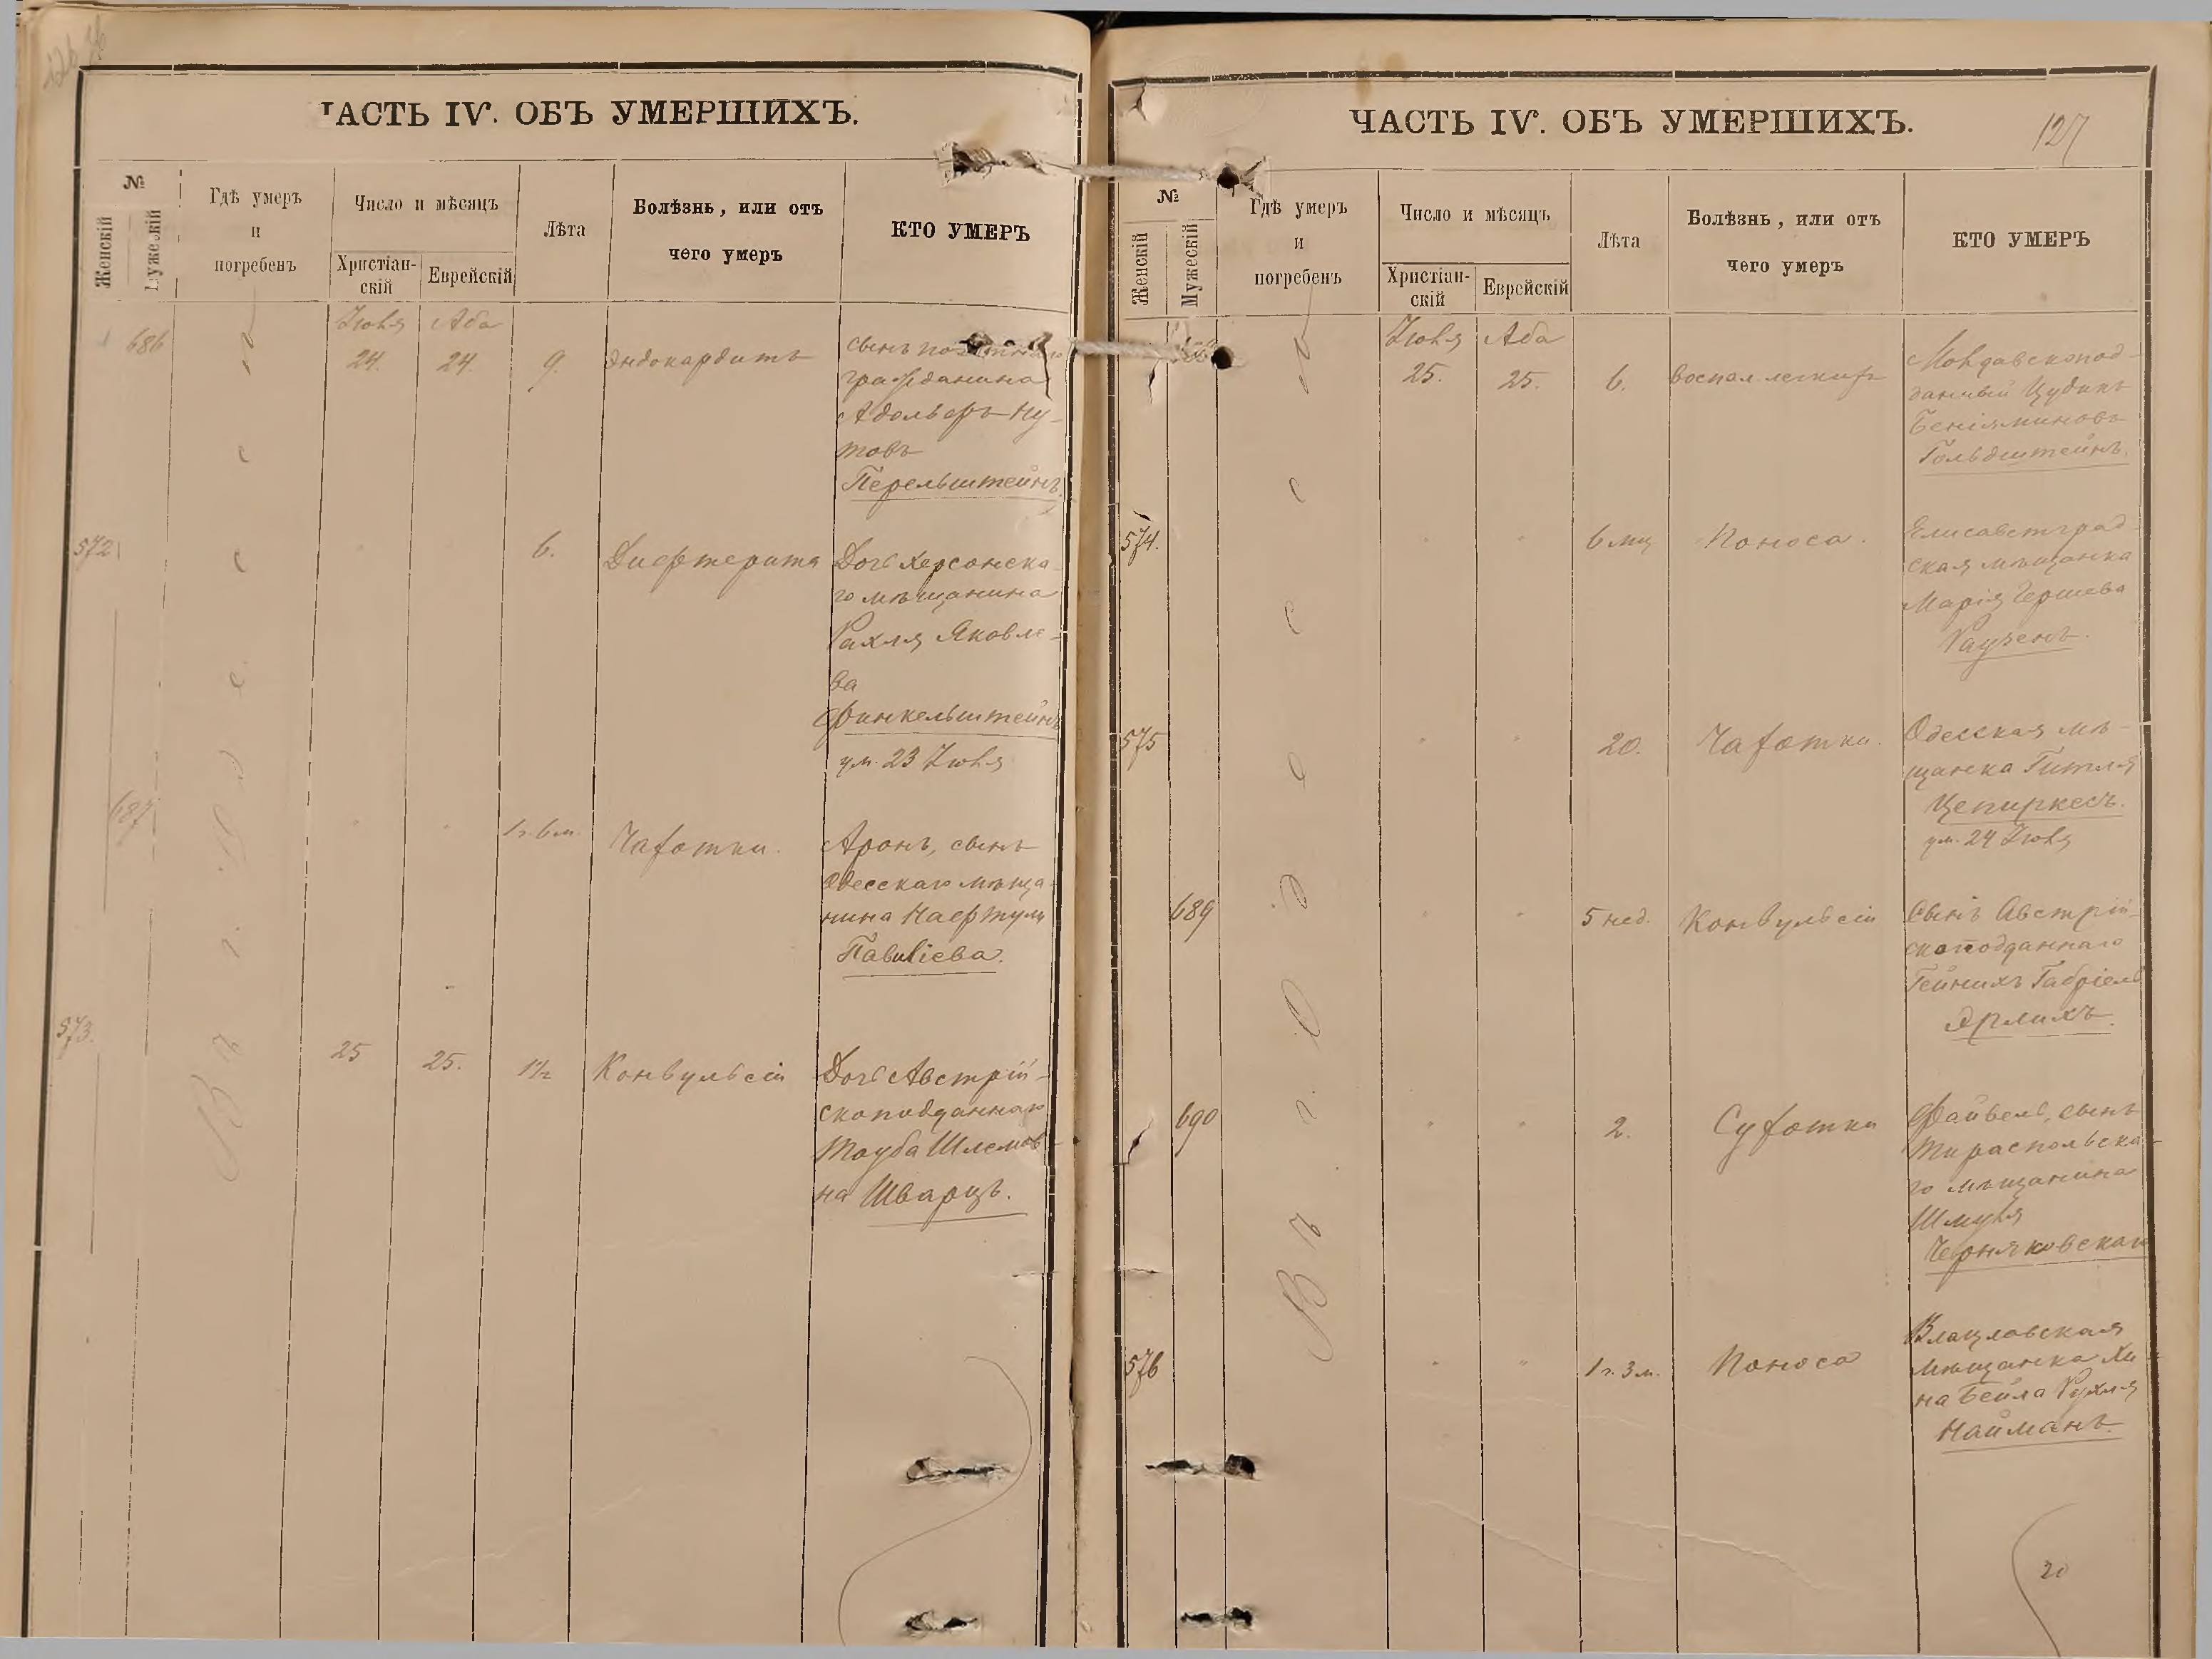 ЧАСТЬ IV. ОБЪ УМЕРШИХЪ.
№
Женскій
Мужескій
Гдѣ умеръ
и
погребенъ
Число и мѣсяцъ
Христіан-
скій
Еврейскій
Лѣта
Болѣзнь, или отъ
чего умеръ
КТО УМЕРЪ
Въ г. Одессѣ
Іюля Аба
686 24. 24. 9. Эндокардитъ
сынъ почетнаго
гражданина
Адольфъ Ну-
товъ
Перельштейнъ.
572 6. Дифтерита
Дочь Херсонска-
го мѣщанина
Рахля Яковле-
ва
Финкельштейнъ
ум. 23 Іюля
687 1 г. 6 м. Чахотки.
Аронъ, сынъ
Одесскаго мѣща-
нина Нафтули
573. 25 25. 1½ Конвульсіи
Дочь Австрій-
скоподданнаго
Тауба Шлемов-
на Шварцъ.
ЧАСТЬ IV. ОБЪ УМЕРШИХЪ.
127
№
Женскій
Мужескій
Гдѣ умеръ
и
погребенъ
Число и мѣсяцъ
Христіан-
скій
Еврейскій
Лѣта
Болѣзнь, или отъ
чего умеръ
КТО УМЕРЪ
Въ г. Одессѣ
Іюля Аба
25. 25. 6. Воспал. легкихъ
Молдавскопод-
данный Цудикъ
Беніяминовъ
Гольдштейнъ.
574. 6 мц Поноса.
Елисаветград-
ская мѣщанка
Марія Гершева
Раузенъ.
575 20. Чахотки.
Одесская мѣ-
щанка Гитля
Цепиркесъ.
ум. 24 Іюля
689 5 нед. Конвульсіи
Сынъ Австрій-
скоподданнаго
Гейнихъ Габріель
Эрлихъ.
690 2. Сухотки
Файвель, сынъ
Тираспольска-
го мѣщанина
Шмуля
Черняковскаго
576 1 г. 3 м. Поноса
мѣщанка Хи-
на Бейла Рухля
Найманъ.
20